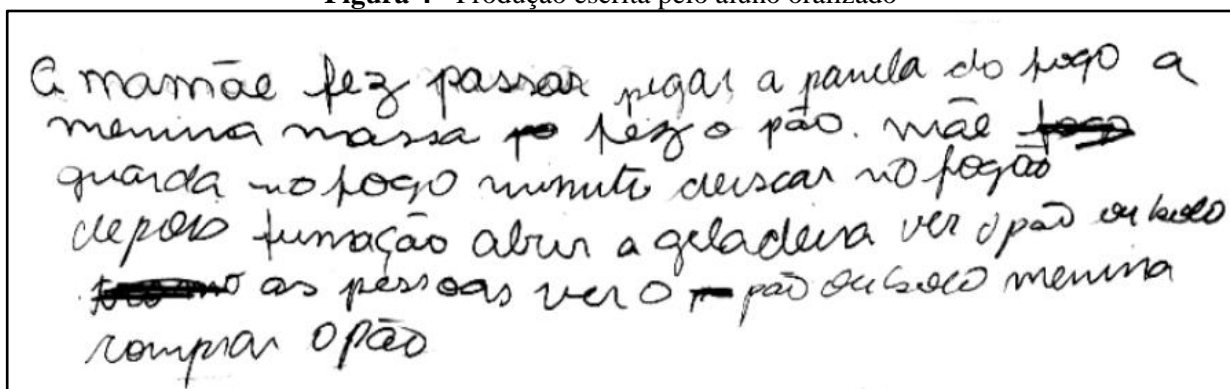 Figura 4 - Produção escrita pelo aluno oralizado
A mamãe fez passar pegar a panela do fogo a
menina massa fez o pão. mãe
guarda no fogo minuto deiscar no fogão
depois fumação abrir a geladeira ver o pão ou bolo
as pessoas ver o pão ou bolo menina
comprar o pão